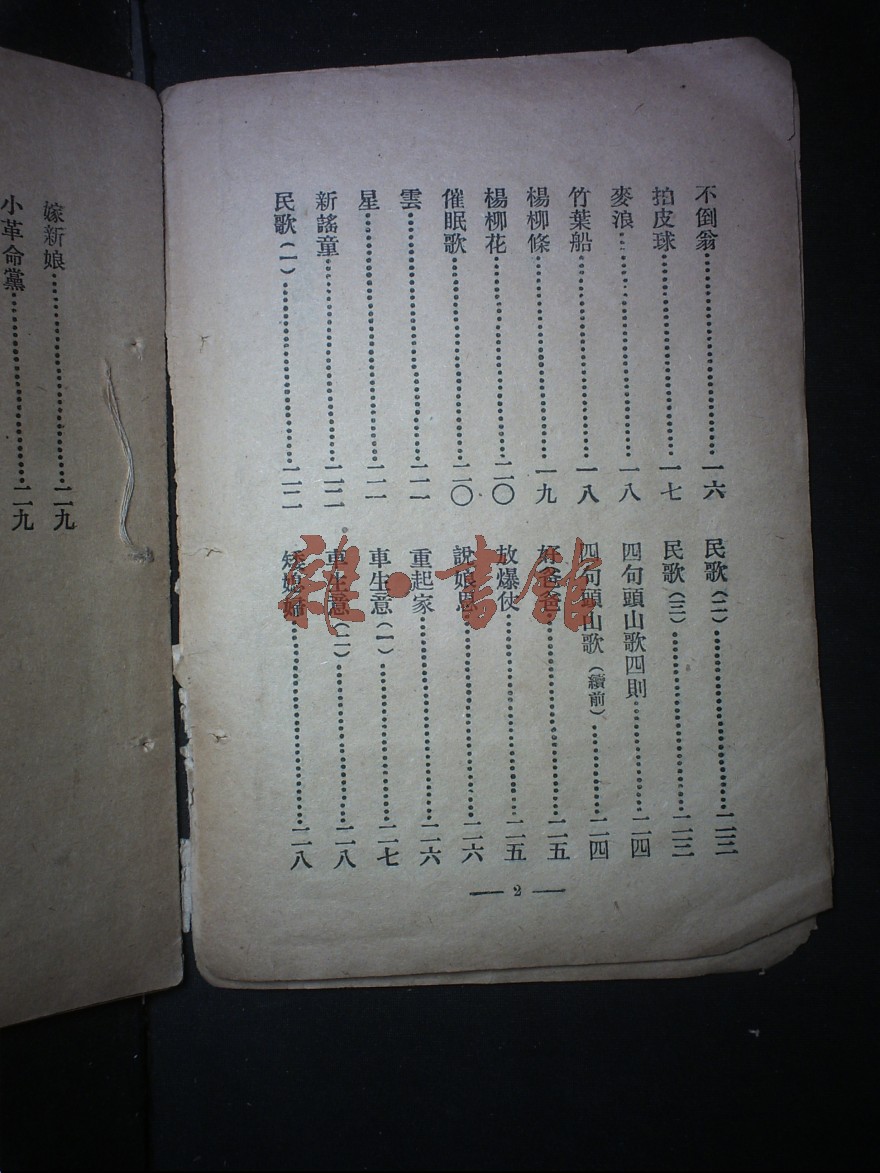 不倒翁……一六
拍皮球……一七
麥浪……一八
竹葉船……一八
楊柳條……一九
楊柳花……二〇
催眠歌……二〇
雲……二一
星……二一
新謠童……二二
民歌(一)……二二
民歌(二)……二三
民歌(三)……二三
四句頭山歌四則……二四
四句頭山歌(續前)……二四
好爸爸……二五
放爆仗……二五
說娘恩……二六
重起家……二六
車生意(一)……二七
車生意(二)……二八
矮媳婦……二八
— 2 —
嫁新娘……二九
小革命黨……二九
雜·書館